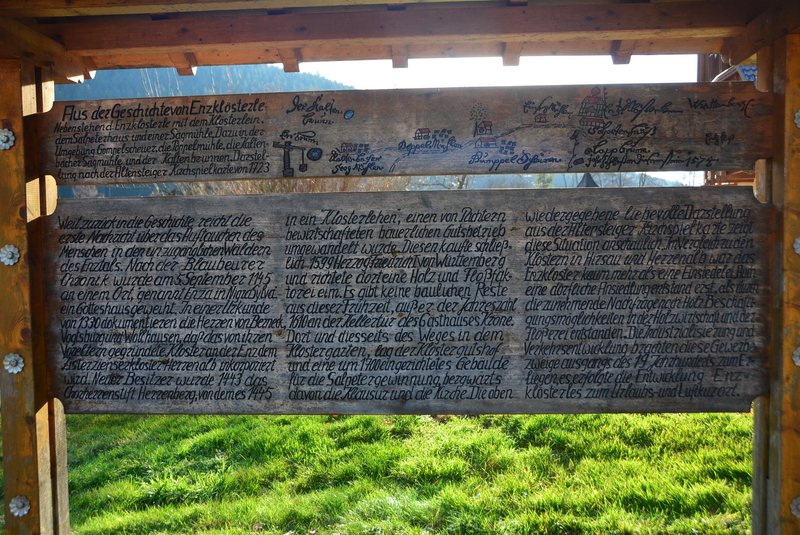 Aus der Geschichte von Enzklösterle
Nebenstehend: Enzklösterle mit dem Klösterlein,
dem Salpeterhaus und einer Sägmühle. Dazu in der
Umgebung Gompelscheuer, die Poppelmühle, die Kälber-
bächer Sägmühle und der Kaltenbrunnen. Darstel-
lung nach der Altensteiger Rachspielkarte von 1723
Württemberg
Poppel Mühlen
Weit zurück in die Geschichte reicht die
erste Nachricht über das Auftauchen des
Menschen in den unzugänglichen Wäldern
des Enztals. Nach der Blaubeurer
Chronik wurde am 5. September 1145
an einem Ort, genannt Enza in Nigra Sylva
ein Gotteshaus geweiht. In einer Urkunde
von 1330 dokumentieren die Herren von Berneck,
Vogtsburg und Waldhausen, daß das von ihren
Vogeltern gegründete Kloster an der Enz dem
Zisterzienserkloster Herrenalb inkorporiert
wird. Neuer Besitzer wurde 1443 das
Chorherrenstift Herrenberg, von dem es 1445
in ein Klosterlehen, einen von Pächtern
bewirtschafteten bäuerlichen Gutsbetrieb
umgewandelt wurde. Diesen kaufte schließ-
lich 1599 Herzog Friedrich I von Württemberg
und richtete dort eine Holz und Floßfak-
torei ein. Es gibt keine baulichen Reste
aus dieser Frühzeit, außer der Jahreszahl
1601 an der Kellertür des Gasthauses Krone.
Dort und diesseits des Weges in dem
Klostergarten, lag der Klostergutshof
und eine um 1700 eingerichtetes Gebäude
für die Salpetergewinnung, bergwärts
davon die Klausur und die Kirche. Die oben
wiedergegebene liebevolle Darstellung
aus der Altensteiger Rachspielkarte zeigt
diese Situation anschaulich. Im Vergleich zu den
Klöstern in Hirsau und Herrenalb war das
Enzkloster kaum mehr als eine Einsiedelei. Auch
eine dörfliche Ansiedlung entstand erst, als durch
die zunehmende Nachfrage nach Holz Beschäfti-
gungsmöglichkeiten in der Holzwirtschaft und der
Flößerei entstanden. Die Industrialisierung und
Verkehrsentwicklung brachten diese Gewerbe-
zweige ausgangs des 19. Jahrhunderts zum Er-
liegen, es erfolgte die Entwicklung Enz-
klösterles zum Urlaubs- und Luftkurort.